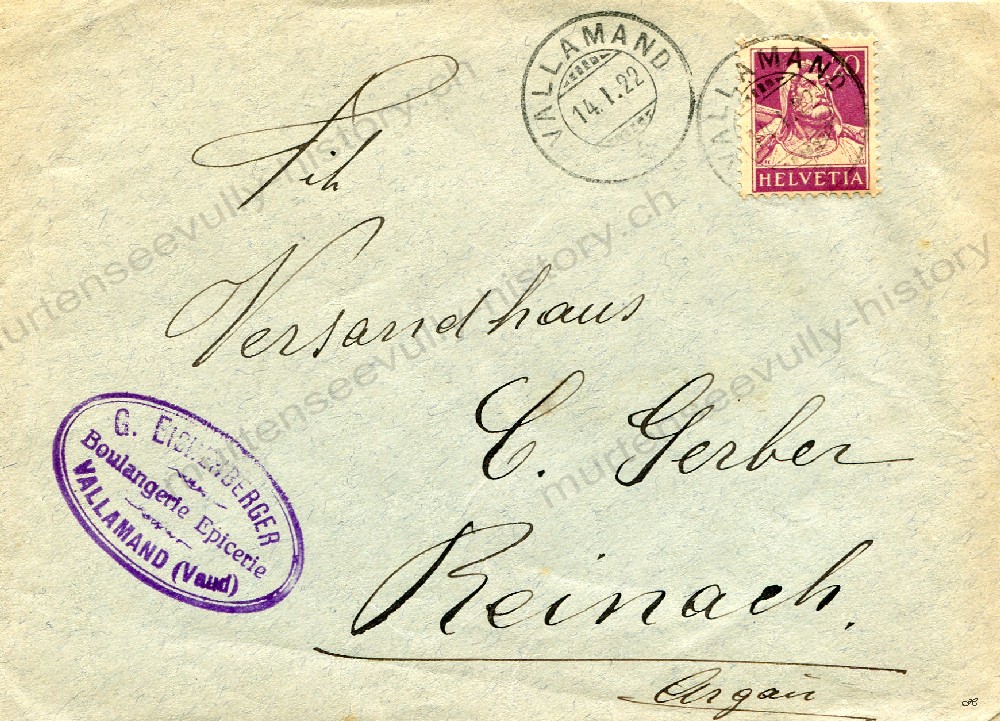 VALLAMAND
14.I.22
VALLAMAND
10
HELVETIA
Tit
Versandhaus
C. Gerber
Reinach.
Argau
G. EICHENBERGER
Boulangerie Epicerie
VALLAMAND (Vaud)
murtenseevully-history.ch
murtenseevully-history.ch
murtenseevully-history.ch